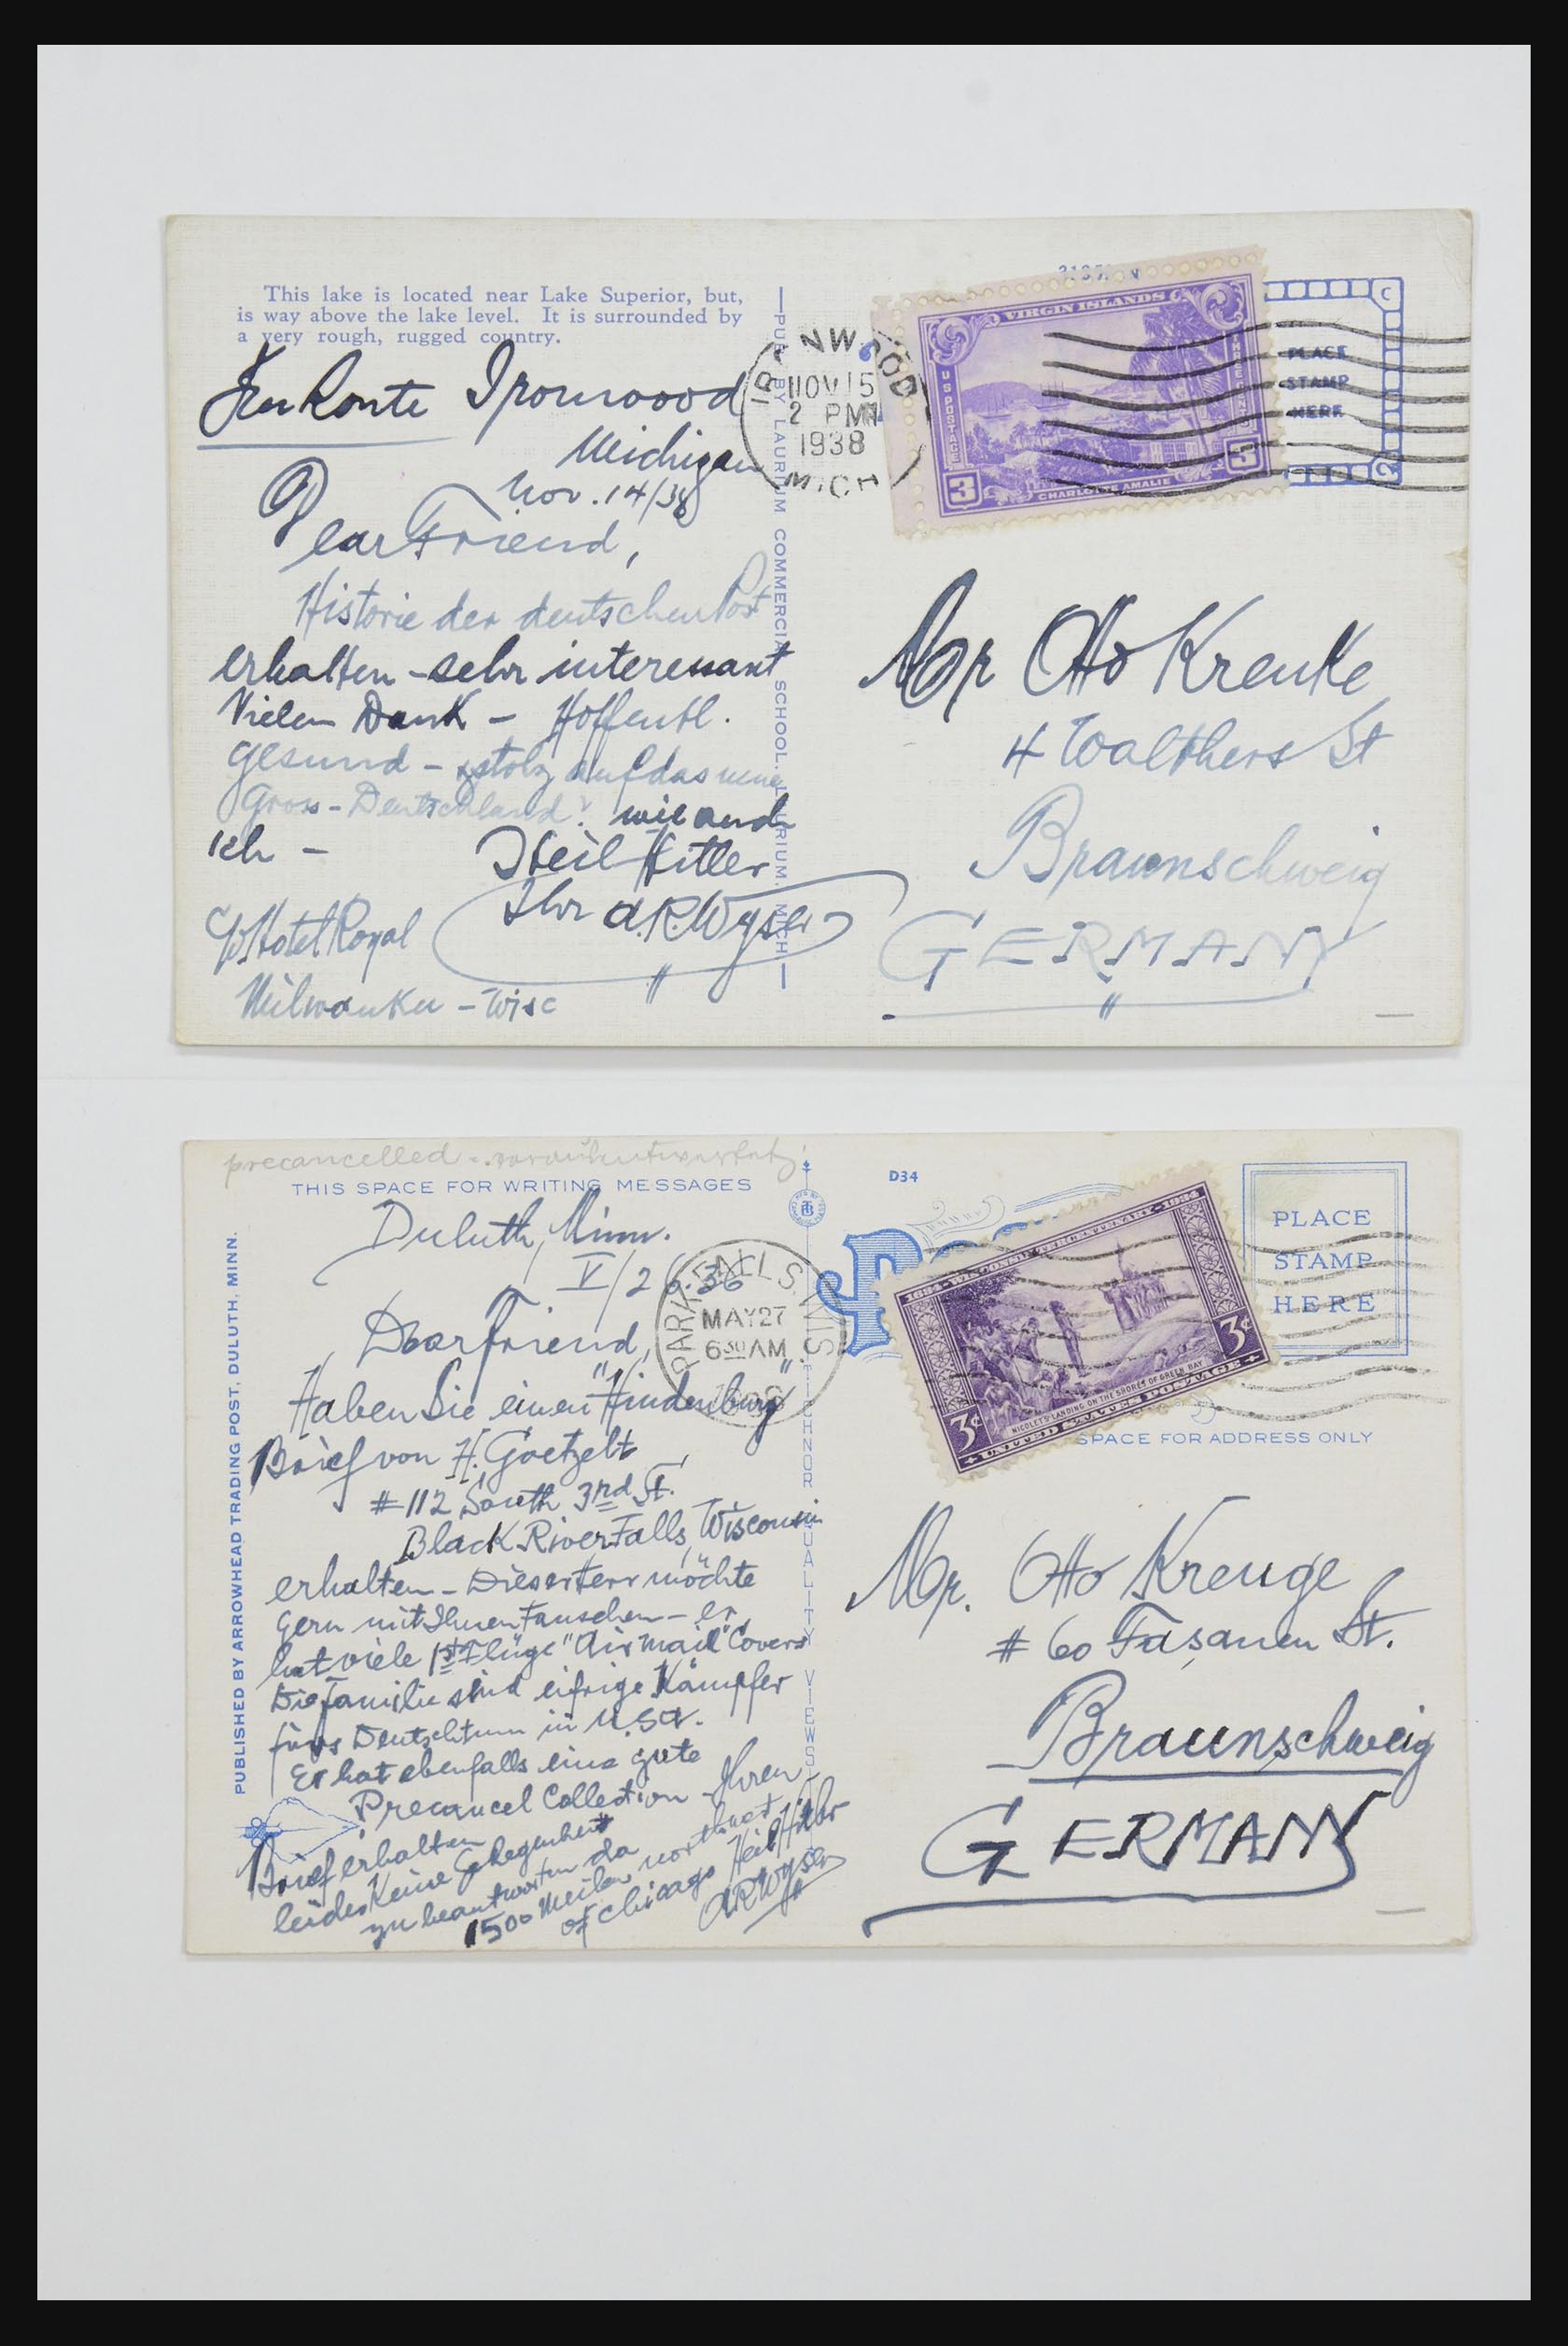 This lake is located near Lake Superior, but,
is way above the lake level. It is surrounded by
a very rough, rugged country.
Ironwood
Michigan
Nov. 14/38
Dear Friend,
Historie der deutschen Post
erhalten - sehr interessant
Vielen Dank - Hoffentl.
gesund - stolz auf das neue
Gross-Deutschland! wie auch
ich -
Heil Hitler
Ihr A.R. Wyser
c/o Hotel Royal
Milwaukee - Wisc
PUB. BY LAURIUM COMMERCIAL SCHOOL, LAURIUM, MICH.
IRONWOOD
NOV 15
2 PM
1938
MICH
VIRGIN ISLANDS
U S POSTAGE
THREE CENTS
3 3
CHARLOTTE AMALIE
PLACE
STAMP
HERE
Mr Otto Krenke
4 Walthers St
Braunschweig
GERMANY
precancelled -
THIS SPACE FOR WRITING MESSAGES
Duluth, Minn.
V/26.36
Dear Friend,
Haben Sie einen "Hindenburg"
Brief von H. Goetzelt
#112 South 3rd St.
Black River Falls, Wisconsin
erhalten - Dieser Herr möchte
gern mit Ihnen tauschen - er
hat viele 1st Flüge "Air Mail" Covers
Die Familie sind eifrige Kämpfer
fürs Deutschtum in U.S.A.
Er hat ebenfalls eine gute
Precancel Collection - Ihren
Brief erhalten
leider keine Gelegenheit
zu beantworten da
1500 Meilen northwest
of Chicago Heil Hitler
A R Wyser
PUBLISHED BY ARROWHEAD TRADING POST, DULUTH, MINN.
PARK FALLS, WIS.
MAY 27
6 30 AM
TICHNOR QUALITY VIEWS
D34
P
1634 - WISCONSIN TERCENTENARY - 1934
3¢ 3¢
NICOLET'S LANDING ON THE SHORES OF GREEN BAY
UNITED STATES POSTAGE
PLACE
STAMP
HERE
SPACE FOR ADDRESS ONLY
Mr. Otto Kreuge
# 60 Fasanen St.
Braunschweig
GERMANY